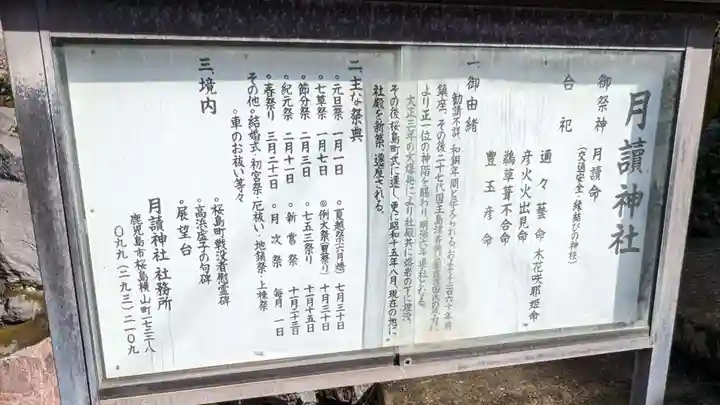 月讀神社
御祭神 月讀命
(交通安全、縁結びの神様)
合祀
邇々藝命 木花咲耶姫命
彦火火出見命
鵜草葺不合命
豊玉彦命
一、御由緒
勧請不詳、和銅年間と伝えられる。
鎮座、その後二十七代国主島津
より正一位の神階を賜わり、明治六年郷社となる。
大正三年の大爆発により社殿共に熔岩の下に埋没、
その後桜島町
に遷し更に昭和十五年八月、現在の地に
社殿を新築、遷座される。
二、主な祭典
○元旦祭 一月一日
○七草祭 一月七日
○節分祭 二月三日
○紀元祭 二月十一日
○春祭り 三月二十一日
○夏越祭(六月燈) 七月三十日
◎例大祭(夏祭り) 十月三十日
○七五三祭り 十一月十五日
○新嘗祭 十一月二十三日
○月次祭 毎月一日
その他○結婚式○初宮祭○厄祓い○地鎮祭○上棟祭
○車のお祓い等々
三、境内
○桜島町戦没者慰霊碑
○高浜虚子の句碑
○展望台
月讀神社 社務所
鹿児島市桜島横山町一七二二ー八
〇九九(二九三)二一〇九